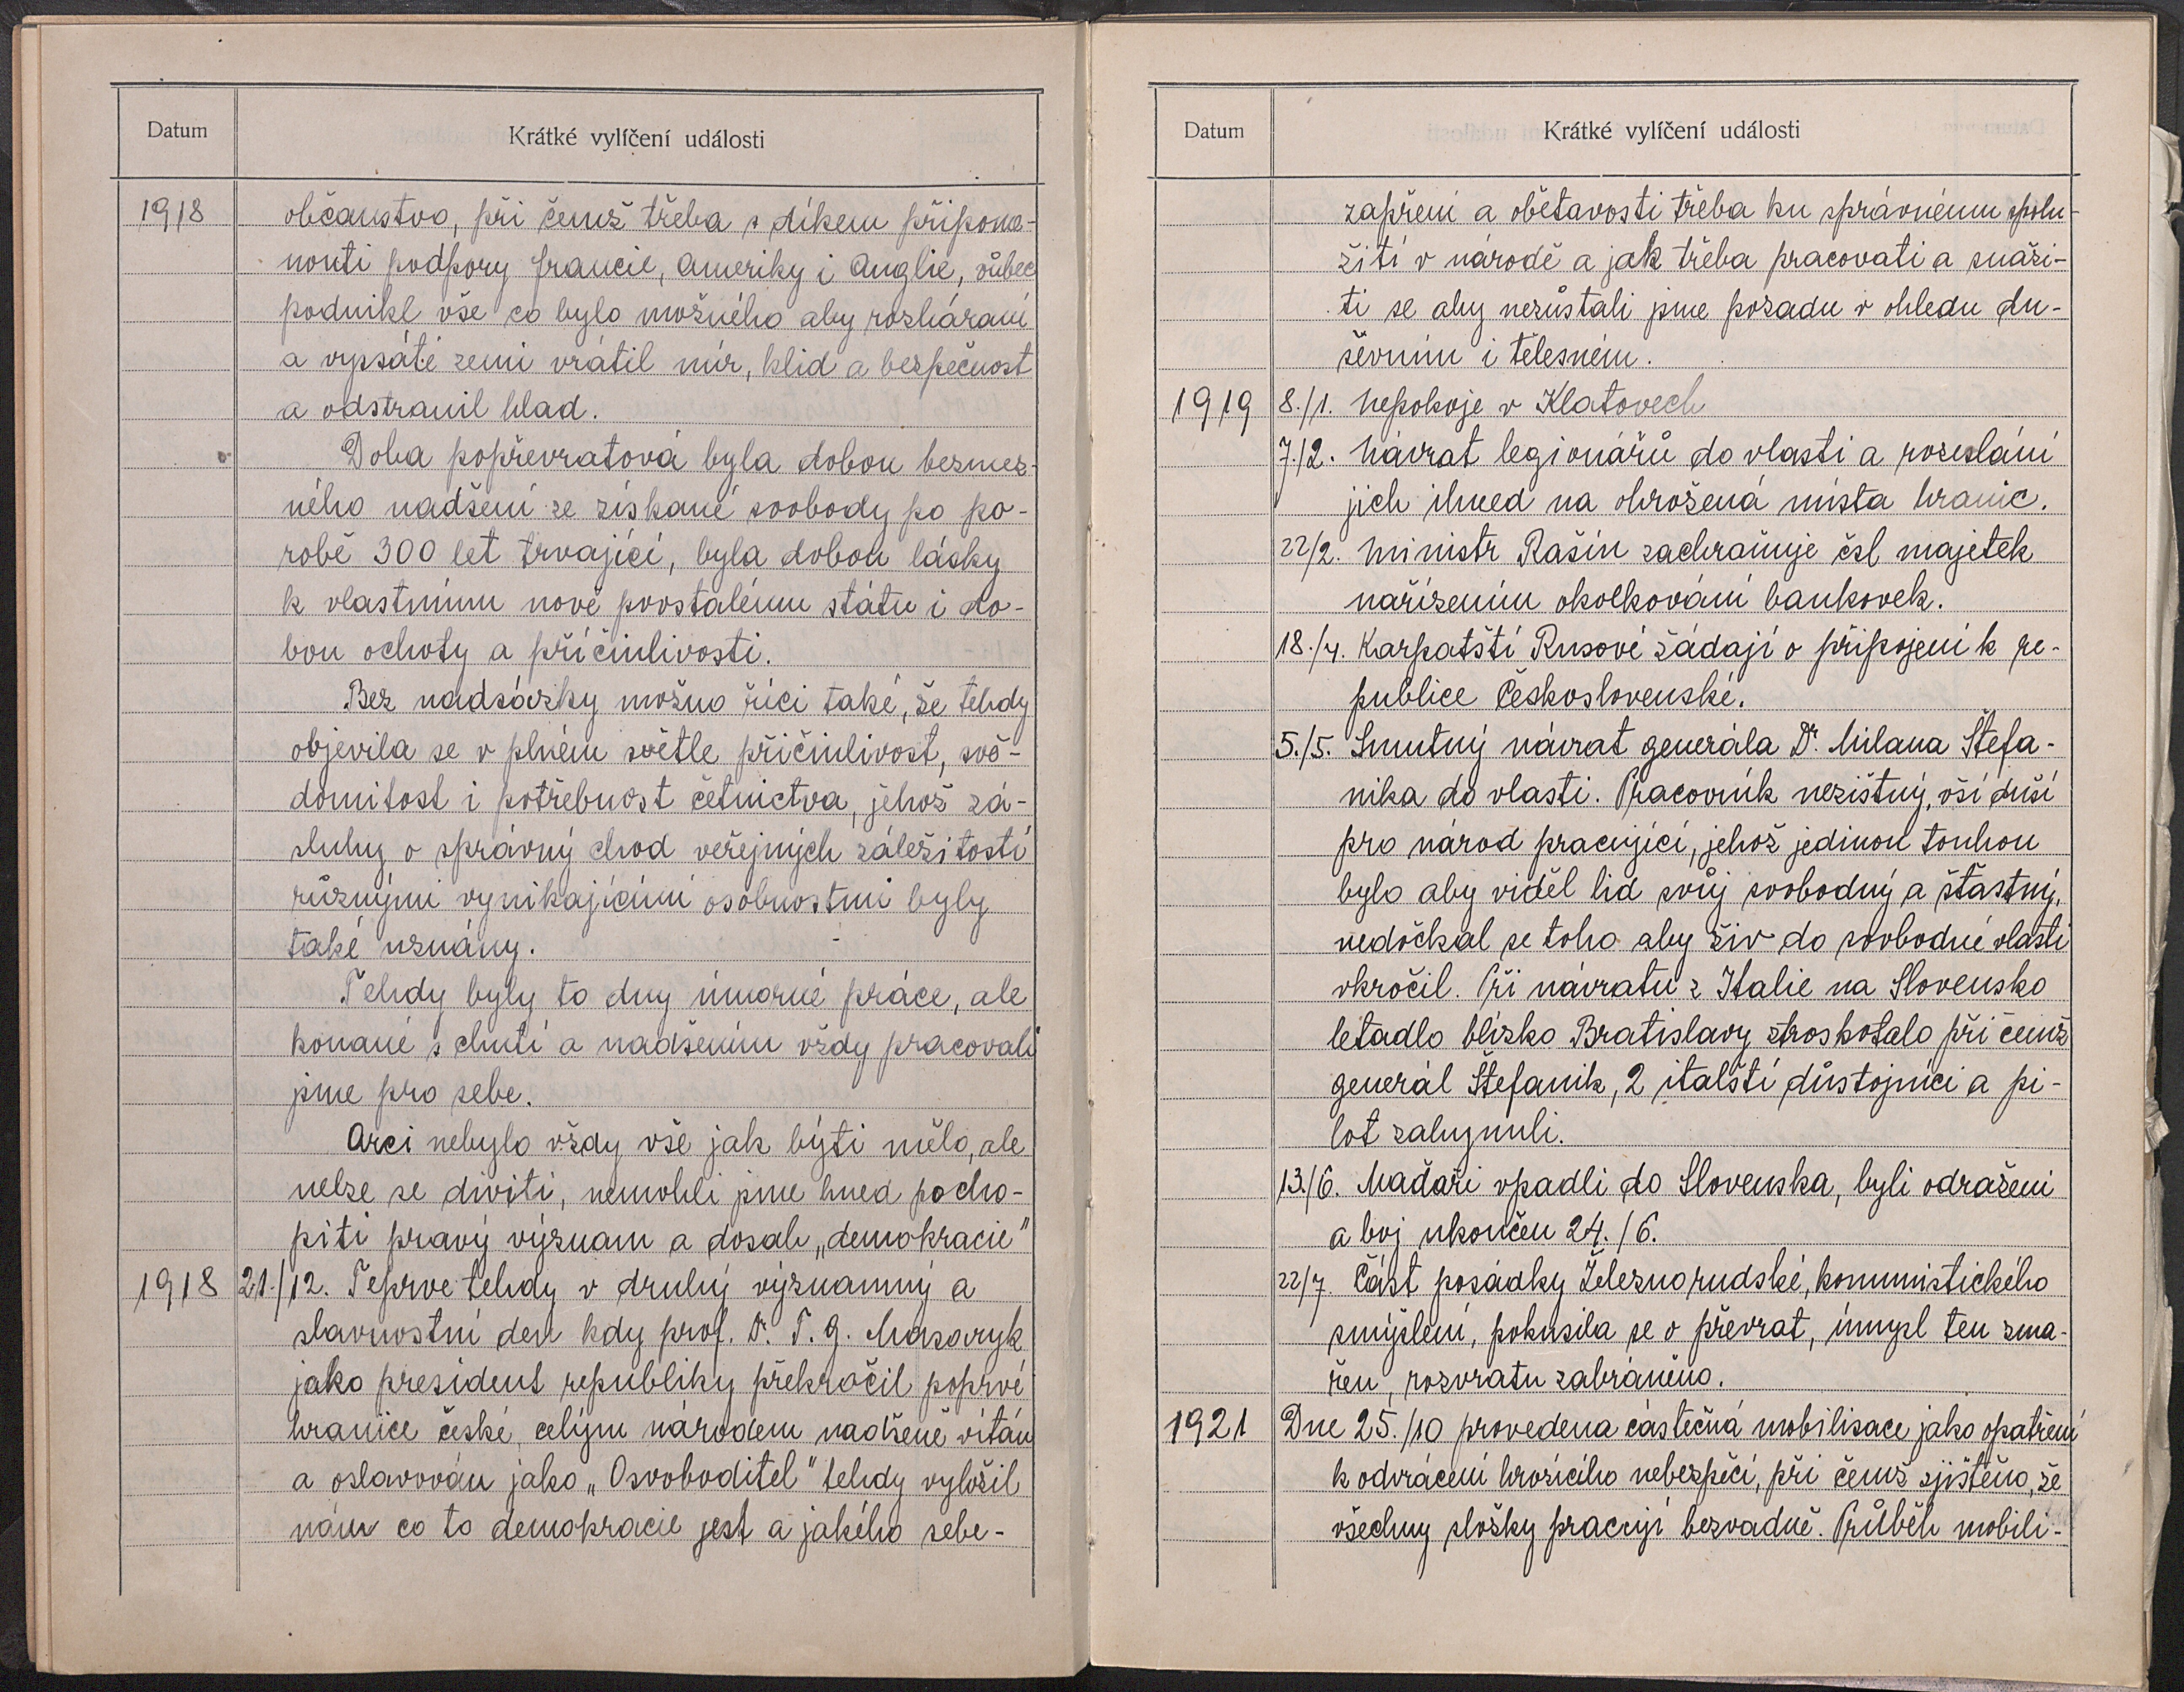 Datum
Krátké vylíčení události
1918 občanstvo, při čemž třeba s díkem připome-
nouti podpory Francie, Ameriky i Anglie, vůbec
podnikl vše co bylo možného aby rozháraní
a vyssáté zemi vrátil mír, klid a bezpečnost
a odstranil hlad.
Doba popřevratová byla dobou bezmez-
ného nadšení ze získané svobody po po-
robě 300 let trvající, byla dobou lásky
k vlastnímu nově povstalému státu i do-
bou ochoty a příčinlivosti.
Bez nadsázky možno říci také, že tehdy
objevila se v plném světle přičinlivost, svě-
domitost i potřebnost četnictva, jehož zá-
sluhy o správný chod veřejných záležitostí
různými vynikajícími osobnostmi byly
také uznány.
Tehdy byly to dny úmorné práce, ale
konané s chutí a nadšením vždy pracovali
jsme pro sebe.
Arci nebylo vždy vše jak býti mělo, ale
nelze se diviti, nemohli jsme hned pocho-
piti pravý význam a dosah „demokracie"
1918 21./12. Teprve tehdy v druhý významný a
slavnostní den kdy prof. Dr. T. G. Masaryk
jako president republiky překročil poprvé
hranice české, celým národem nadšeně vítán
a oslavován jako „Osvoboditel" tehdy vyložil
nám co to demokracie jest a jakého sebe-
Datum
Krátké vylíčení události
zapření a obětavosti třeba ku správnému spolu-
žití v národě a jak třeba pracovati a snaži-
ti se aby nezůstali jsme pozadu v ohledu du-
ševním i tělesném.
1919 8./1. Nepokoje v Klatovech
7./2. Návrat legionářů do vlasti a rozeslání
jich ihned na ohrožená místa hranic.
22/2. Ministr Rašín zachraňuje čsl majetek
nařízením okolkování bankovek.
18./4. Karpatští Rusové žádají o připojení k re-
publice Československé.
5./5. Smutný návrat generála Dr. Milana Štefa-
nika do vlasti. Pracovník nezištný, vší duší
pro národ pracující, jehož jedinou touhou
bylo aby viděl lid svůj svobodný a šťastný,
nedočkal se toho aby živ do svobodné vlasti
vkročil. Při návratu z Italie na Slovensko
letadlo blízko Bratislavy ztroskotalo při čemž
generál Štefanik, 2 italští důstojníci a pi-
lot zahynuli.
13./6. Maďaři vpadli do Slovenska, byli odraženi
a boj ukončen 24./6.
22/7. Část posádky Železnorudské, komunistického
smýšlení, pokusila se o převrat, úmysl ten zma-
řen, rozvratu zabráněno.
1921 Dne 25./10 provedena částečná mobilisace jako opatření
k odvrácení hrozícího nebezpečí, při čemž zjištěno, že
všechny složky pracují bezvadně. Průběh mobili-